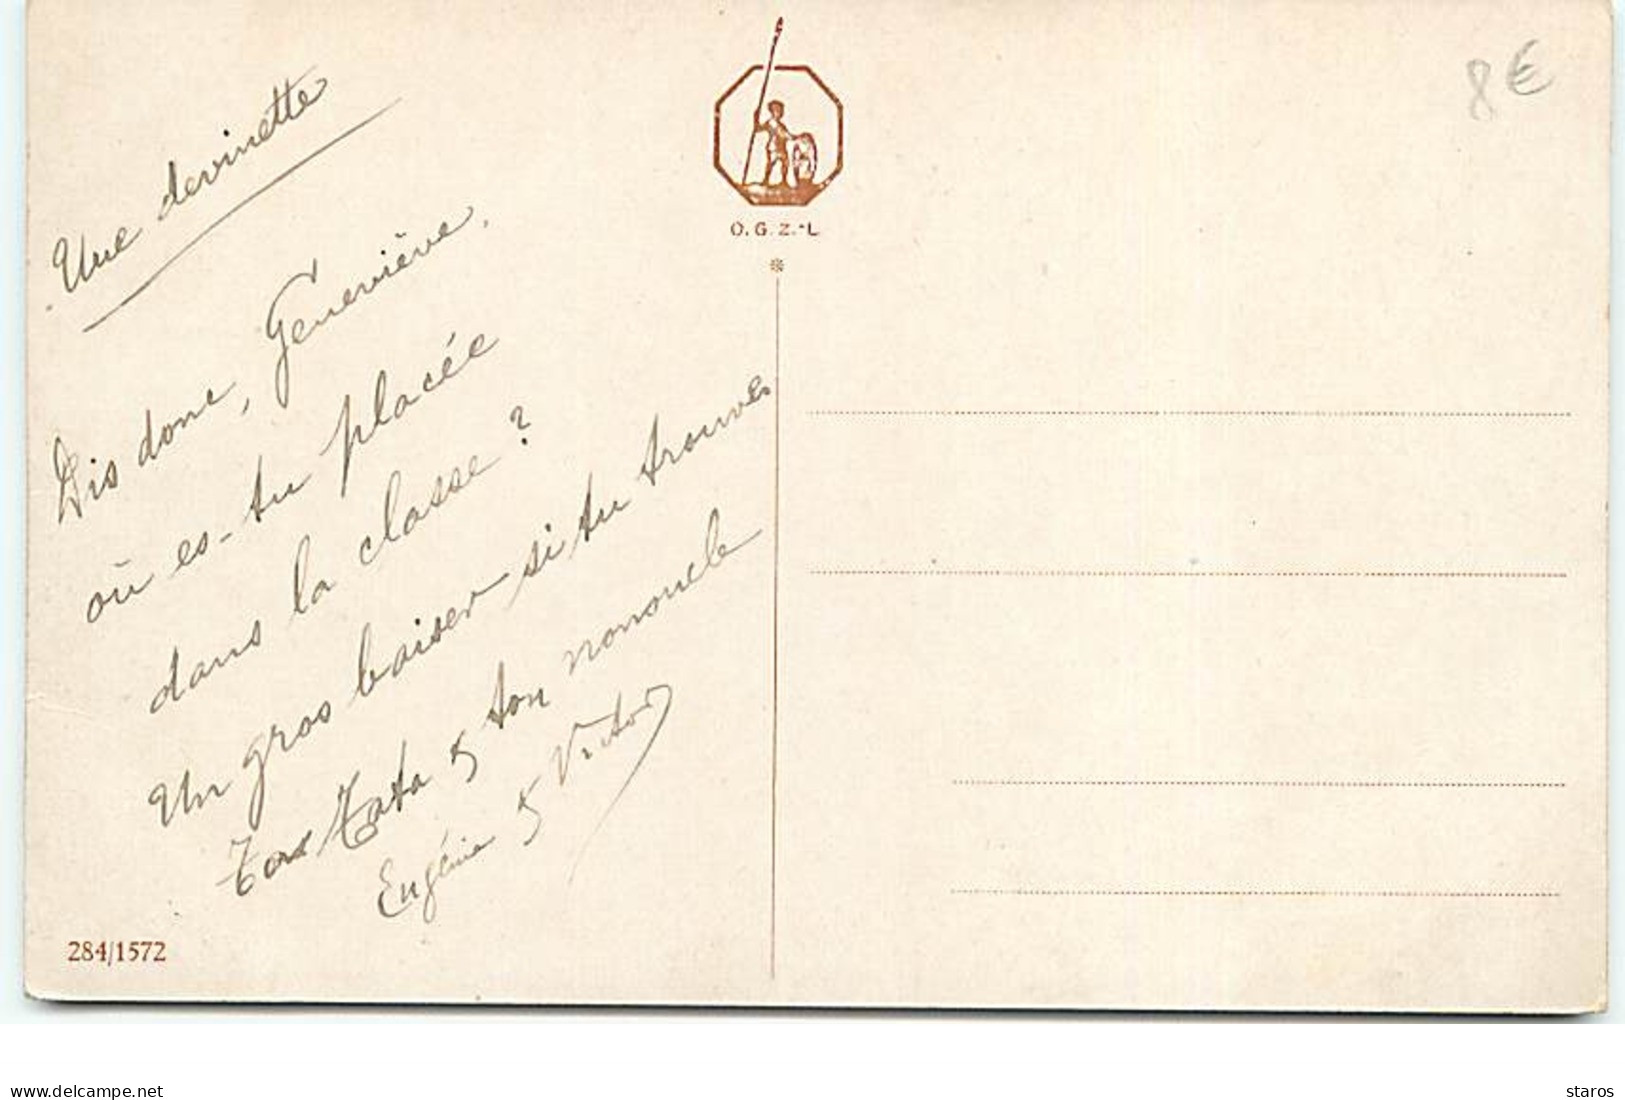 Une devinette
Dis donc, Geneviève,
où es-tu placée
dans la classe ?
Un gros baiser si tu trouves
Tata & ton nononcle
Eugénie & Victor
O. G. Z.-L.
8 €
284/1572
www.delcampe.net
staros